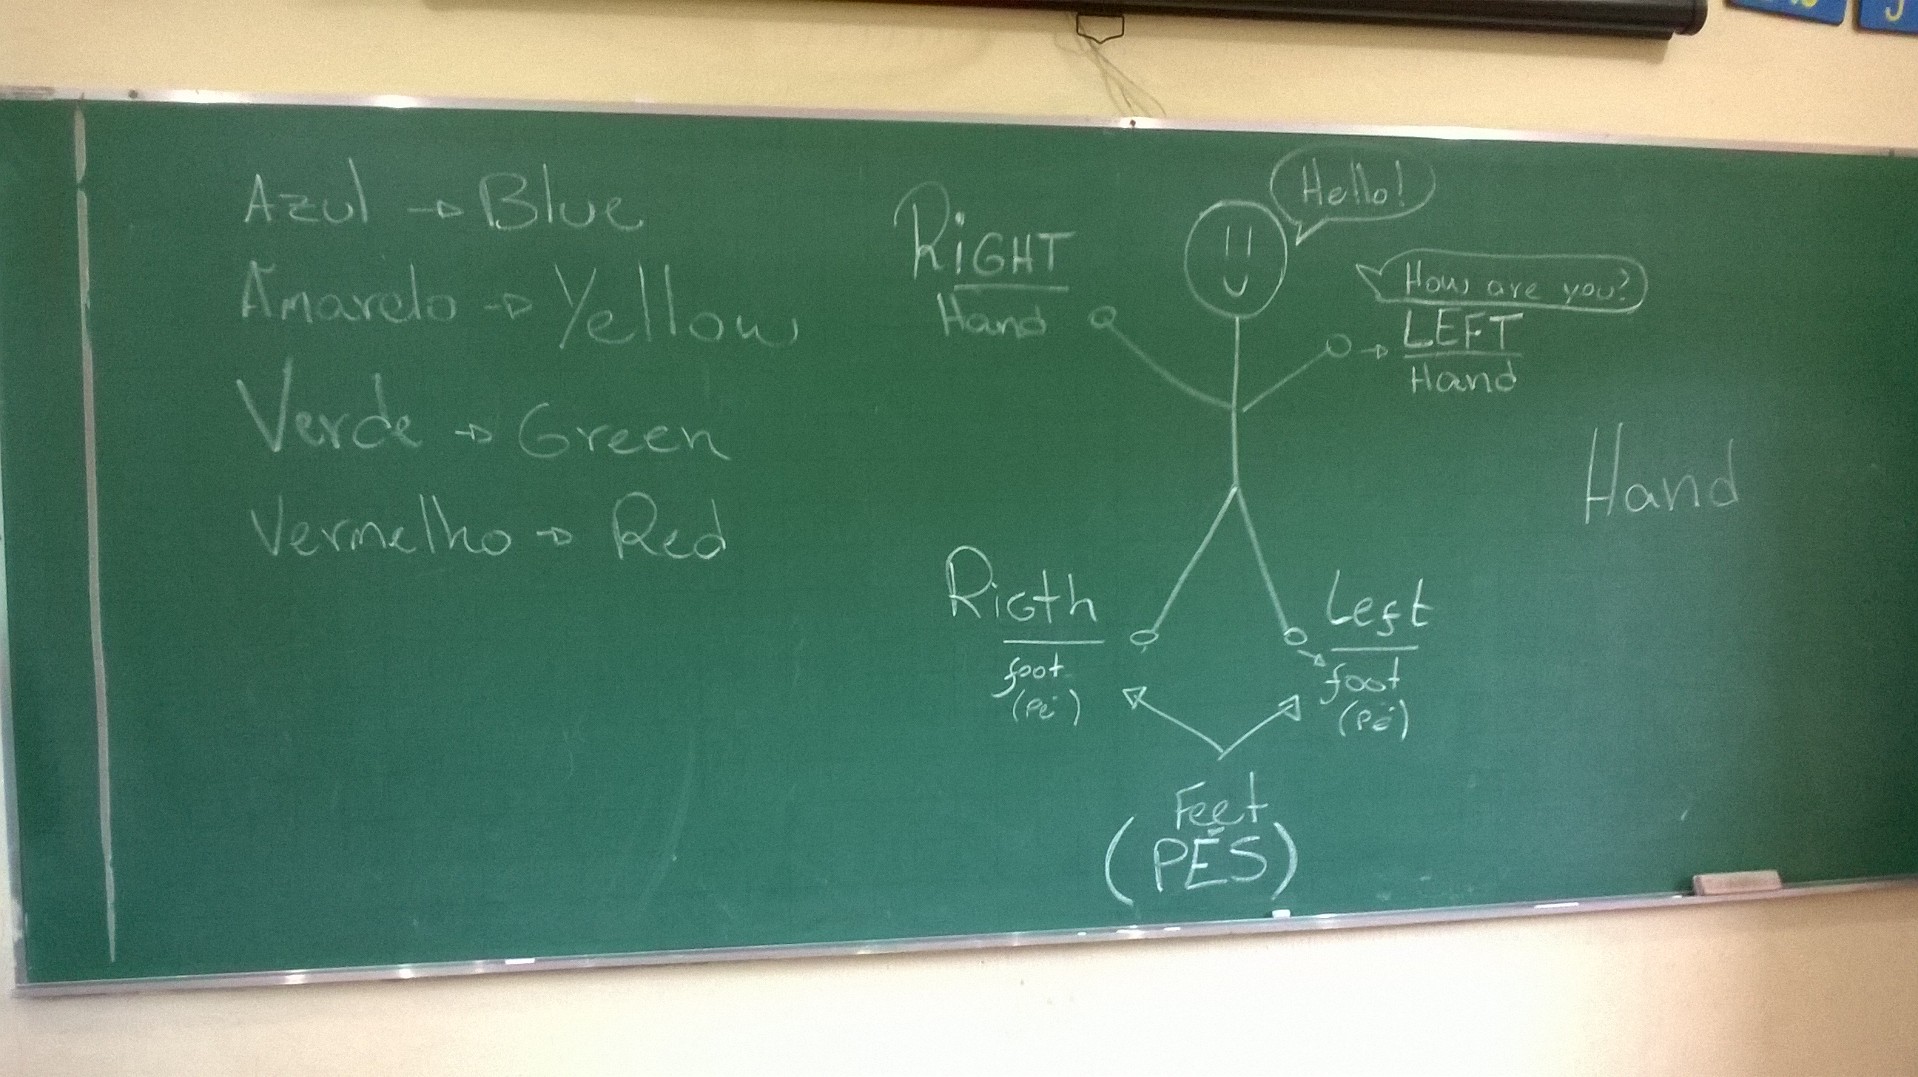 Azul → Blue
Amarelo → Yellow
Verde → Green
Vermelho → Red
Hello!
RiGHT
Hand
How are you?
LEFT
Hand
Hand
Rigth
foot
(Pé)
Left
foot
(Pé)
Feet
(PÉS)